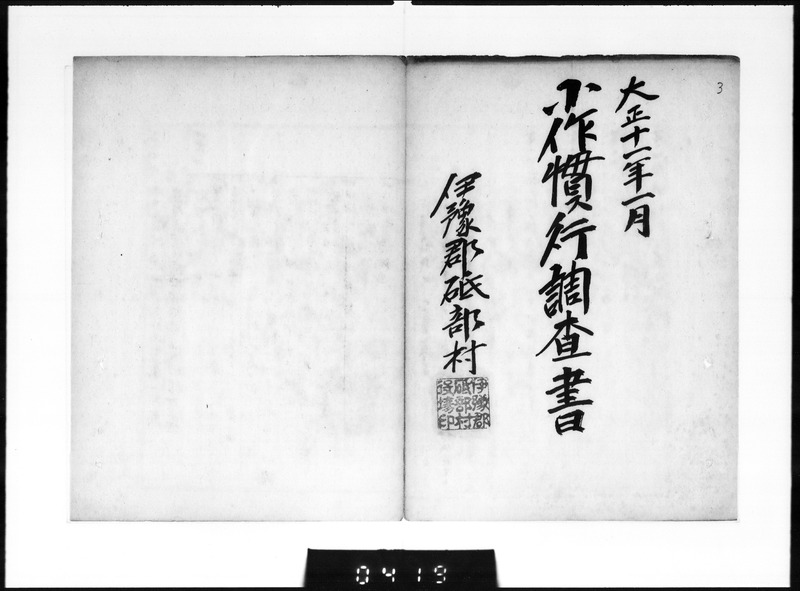 3
大正十一年一月
小作慣行調査書
伊豫郡砥部村
伊豫郡
砥部村
役場印
0419